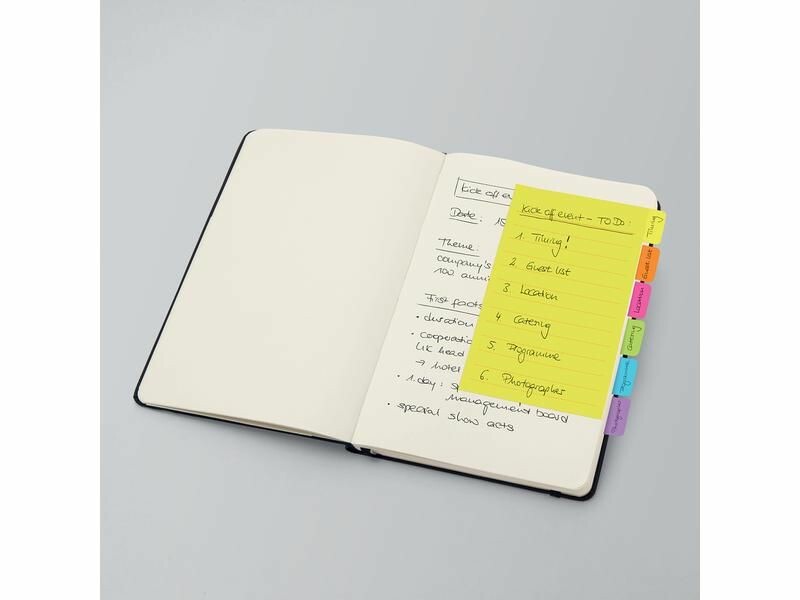 Kick off ev
Date: 15
Theme:
company's
100 anni
First facts
• duration
• cooperatio
UK head
→ hotel
• 1. day: s
management board
• special show acts
Kick off event – TO Do:
1. Timing!
2. Guest list
3. Location
4. Catering
5. Programme
6. Photographer
Timing
Guest list
Location
Catering
Programme
Photographer